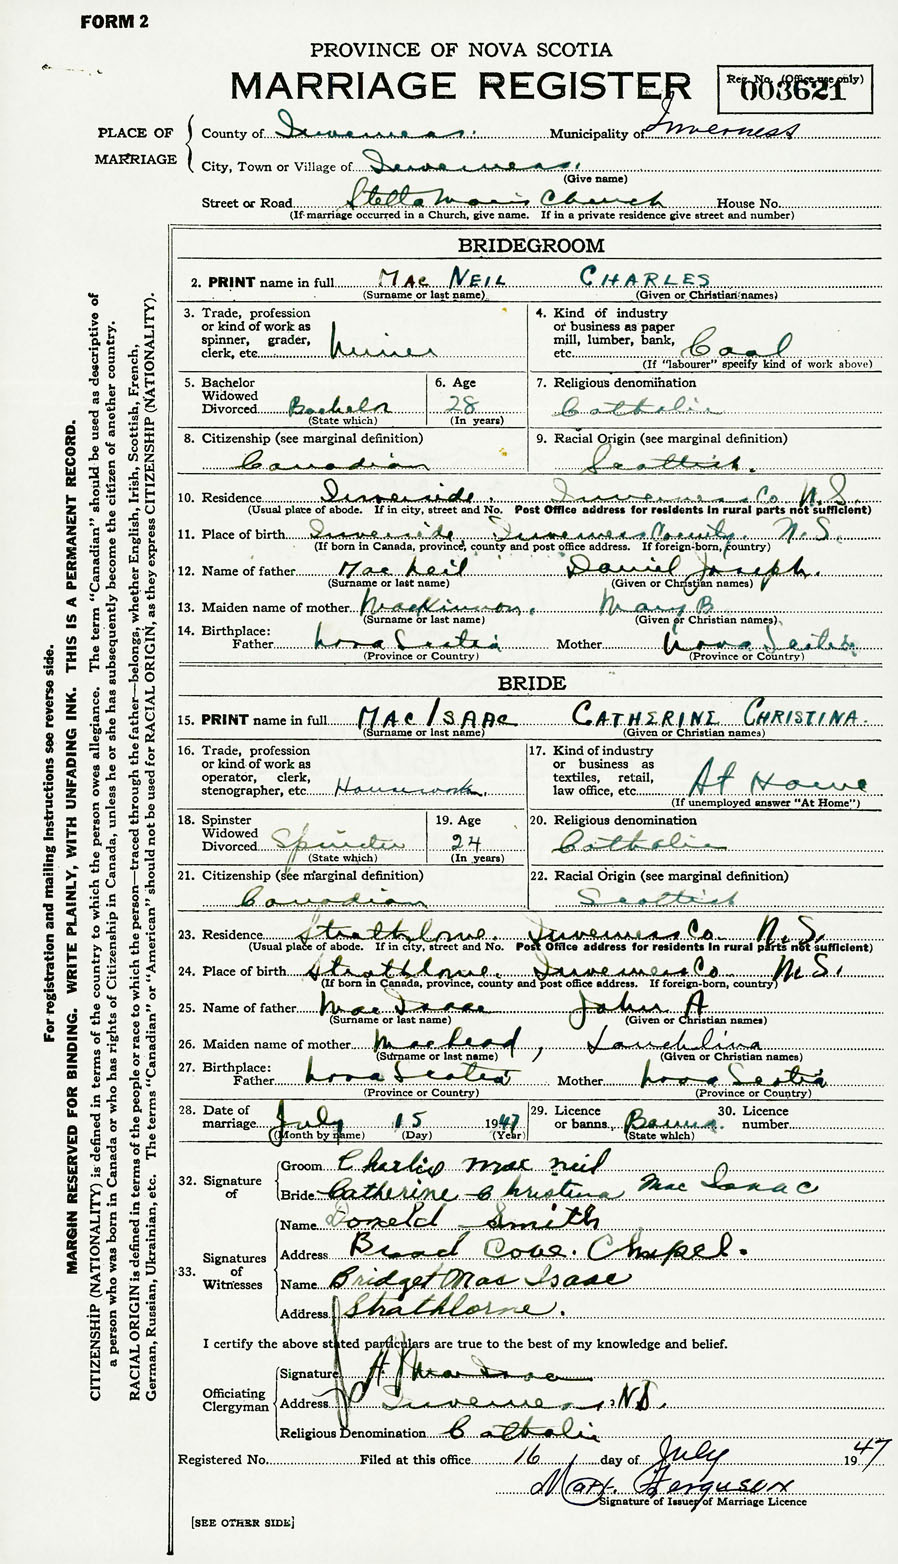 FORM 2
PROVINCE OF NOVA SCOTIA
MARRIAGE REGISTER
Reg. No. (Office use only)
003621
PLACE OF MARRIAGE
County of Inverness. Municipality of Inverness
City, Town or Village of Inverness.
(Give name)
Street or Road Stella Maris Church House No.
(If marriage occurred in a Church, give name. If in a private residence give street and number)
BRIDEGROOM
2. PRINT name in full MAC NEIL CHARLES
(Surname or last name) (Given or Christian names)
3. Trade, profession or kind of work as spinner, grader, clerk, etc. Miner
4. Kind of industry or business as paper mill, lumber, bank, etc. Coal
(If "labourer" specify kind of work above)
5. Bachelor Widowed Divorced Bachelor
(State which)
6. Age 28
(In years)
7. Religious denomination Catholic
8. Citizenship (see marginal definition) Canadian
9. Racial Origin (see marginal definition) Scottish.
10. Residence Inverside. Inverness Co. N.S.
(Usual place of abode. If in city, street and No. Post Office address for residents in rural parts not sufficient)
11. Place of birth Inverside Inverness County. N.S.
(If born in Canada, province, county and post office address. If foreign-born, country)
12. Name of father Mac Neil Daniel Joseph.
(Surname or last name) (Given or Christian names)
13. Maiden name of mother MacKinnon. Mary B
(Surname or last name) (Given or Christian names)
14. Birthplace: Father Nova Scotia Mother Nova Scotia
(Province or Country) (Province or Country)
BRIDE
15. PRINT name in full MAC ISAAC CATHERINE CHRISTINA.
(Surname or last name) (Given or Christian names)
16. Trade, profession or kind of work as operator, clerk, stenographer, etc. Housework.
17. Kind of industry or business as textiles, retail, law office, etc. At Home
(If unemployed answer "At Home")
18. Spinster Widowed Divorced Spinster
(State which)
19. Age 24
(In years)
20. Religious denomination Catholic
21. Citizenship (see marginal definition) Canadian
22. Racial Origin (see marginal definition) Scottish
23. Residence Strathlorne. Inverness Co. N.S.
(Usual place of abode. If in city, street and No. Post Office address for residents in rural parts not sufficient)
24. Place of birth Strathlorne. Inverness Co N.S.
(If born in Canada, province, county and post office address. If foreign-born, country)
25. Name of father Mac Isaac John A
(Surname or last name) (Given or Christian names)
26. Maiden name of mother , Lauchlina
(Surname or last name) (Given or Christian names)
27. Birthplace: Father Nova Scotia Mother Nova Scotia
(Province or Country) (Province or Country)
28. Date of marriage July 15 1947
(Month by name) (Day) (Year)
29. Licence or banns Banns.
(State which)
30. Licence number
32. Signature of
Groom Charlie Mac Neil
Bride Catherine Christina Mac Isaac
33. Signatures of Witnesses
Name Donald Smith
Address Broad Cove. Chapel.
Name Bridget Mac Isaac
Address Strathlorne.
I certify the above stated particulars are true to the best of my knowledge and belief.
Officiating Clergyman
Signature MacIsaac
Address Inverness, N.S.
Religious Denomination Catholic
Registered No. Filed at this office 16 day of July 1947
Ferguson
Signature of Issuer of Marriage Licence
[SEE OTHER SIDE]
For registration and mailing instructions see reverse side.
MARGIN RESERVED FOR BINDING. WRITE PLAINLY, WITH UNFADING INK. THIS IS A PERMANENT RECORD.
CITIZENSHIP (NATIONALITY) is defined in terms of the country to which the person owes allegiance. The term "Canadian" should be used as descriptive of
a person who was born in Canada or who has rights of Citizenship in Canada, unless he or she has subsequently become the citizen of another country.
RACIAL ORIGIN is defined in terms of the people or race to which the person—traced through the father—belongs; whether English, Irish, Scottish, French,
German, Russian, Ukrainian, etc. The terms "Canadian" or "American" should not be used for RACIAL ORIGIN, as they express CITIZENSHIP (NATIONALITY).